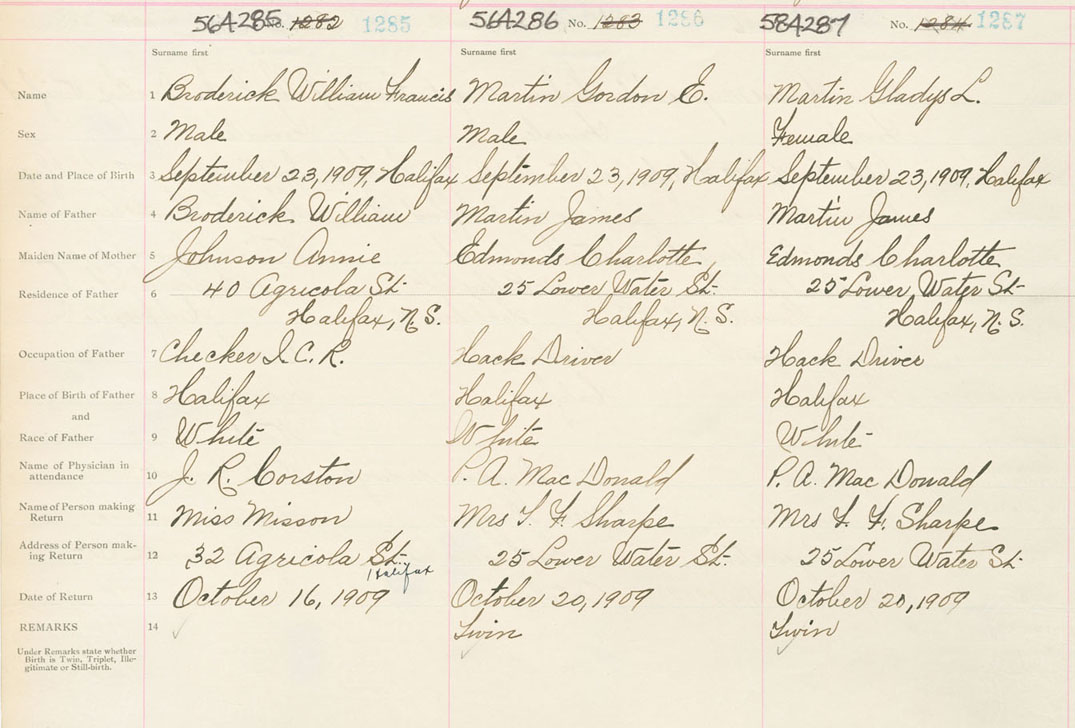 56A285 No. 1282 1285 56A286 No. 1283 1286 58A287 No. 1284 1287
Surname first Surname first Surname first
Name 1 Broderick William Francis Martin Gordon E. Martin Gladys L.
Sex 2 Male Male Female
Date and Place of Birth 3 September 23, 1909, Halifax September 23, 1909, Halifax September 23, 1909, Halifax
Name of Father 4 Broderick William Martin James Martin James
Maiden Name of Mother 5 Johnson Annie Edmonds Charlotte Edmonds Charlotte
Residence of Father 6 40 Agricola St. 25 Lower Water St. 25 Lower Water St.
Halifax, N.S. Halifax, N.S. Halifax, N.S.
Occupation of Father 7 Checker I.C.R. Hack Driver Hack Driver
Place of Birth of Father 8 Halifax Halifax Halifax
and
Race of Father 9 White White White
Name of Physician in
attendance 10 J. R. Corston P. A. Mac Donald P. A. Mac Donald
Name of Person making
Return 11 Miss Misson Mrs F. Sharpe Mrs F. Sharpe
Address of Person mak-
ing Return 12 32 Agricola St. 25 Lower Water St. 25 Lower Water St.
Halifax
Date of Return 13 October 16, 1909 October 20, 1909 October 20, 1909
REMARKS 14 Twin Twin
Under Remarks state whether
Birth is Twin, Triplet, Ille-
gitimate or Still-birth.